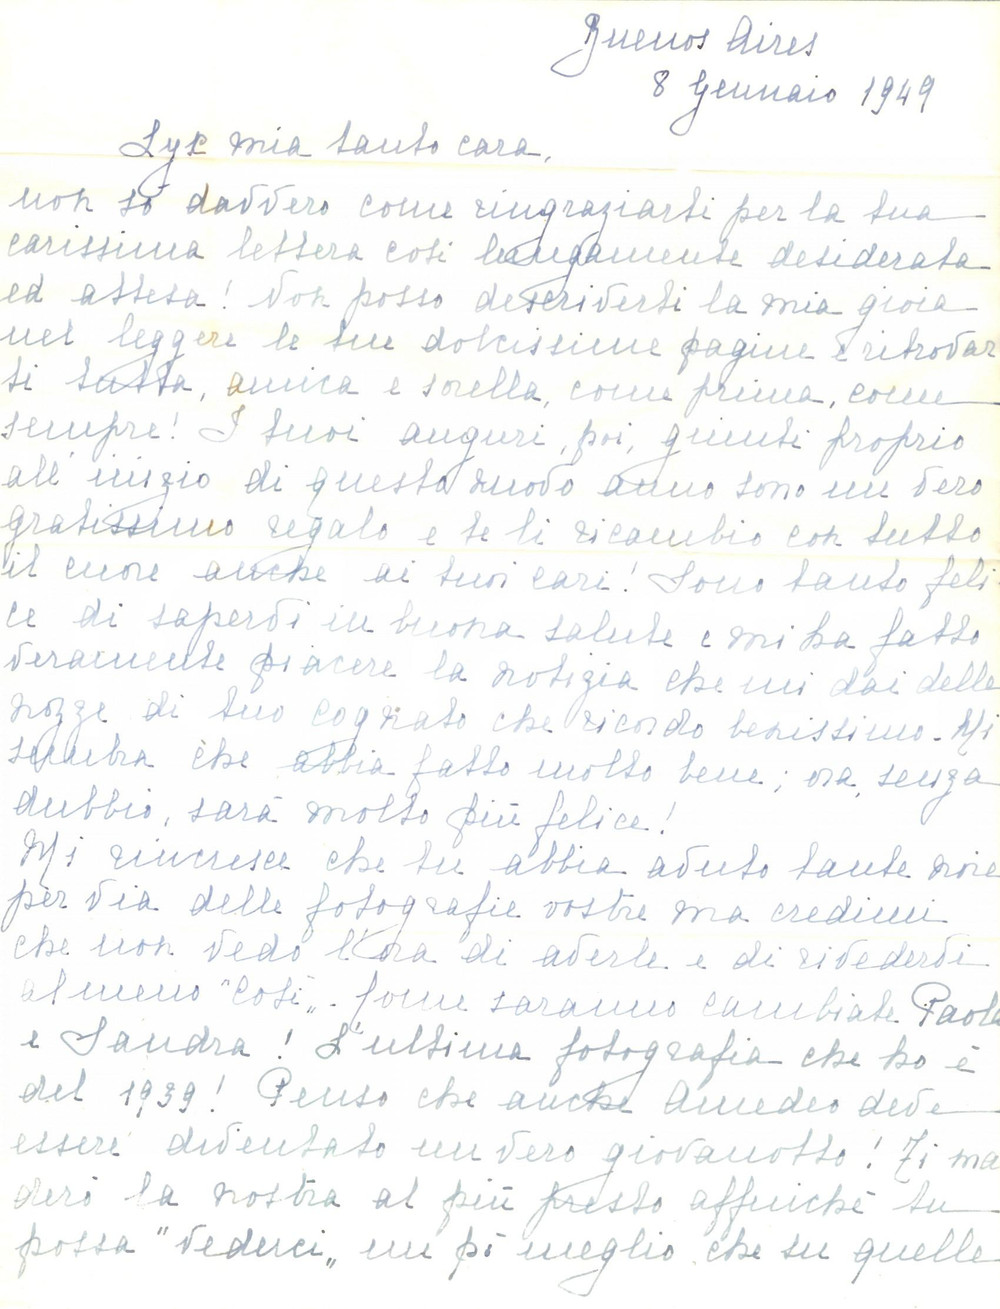 Buenos Aires
8 Gennaio 1949
Lyk mia tanto cara,
non so davvero come ringraziarti per la tua
carissima lettera così lungamente desiderata
ed attesa! Non posso descriverti la mia gioia
nel leggere le tue dolcissime pagine e ritrovar
ti tutta, amica e sorella, come prima, come
sempre! I tuoi auguri, poi, giunti proprio
all'inizio di questo nuovo anno sono un vero
gratissimo regalo e te li ricambio con tutto
il cuore anche ai tuoi cari! Sono tanto feli-
ce di saperti in buona salute e mi ha fatto
veramente piacere la notizia che mi dai delle
nozze di tuo cognato che ricordo benissimo. Mi
sembra che abbia fatto molto bene; ora, senza
dubbio, sarà molto più felice!
Mi rincresce che tu abbia avuto tante noie
per via delle fotografie vostre ma credimi
che non vedo l'ora di averle e di rivedervi
almeno "così". Come saranno cambiate Paola
e Sandra! L'ultima fotografia che ho è
del 1939! Penso che anche Amedeo deve
essere diventato un vero giovanotto! Ti ma
derò la nostra al più presto affinchè tu
possa "vederci" un pò meglio che su quelle